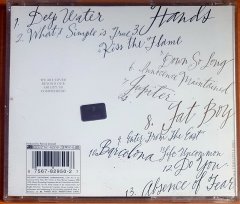 1. Deep Water
2. What's Simple is True
3. Hands
4. Kiss the Flame
5. Down So Long
6. Innocence Maintained
7. Jupiter
8. Fat Boy
9. Enter From the East
10. Barcelona
11. Life Uncommon
12. Do You
13. Absence of Fear
7567-82950-2